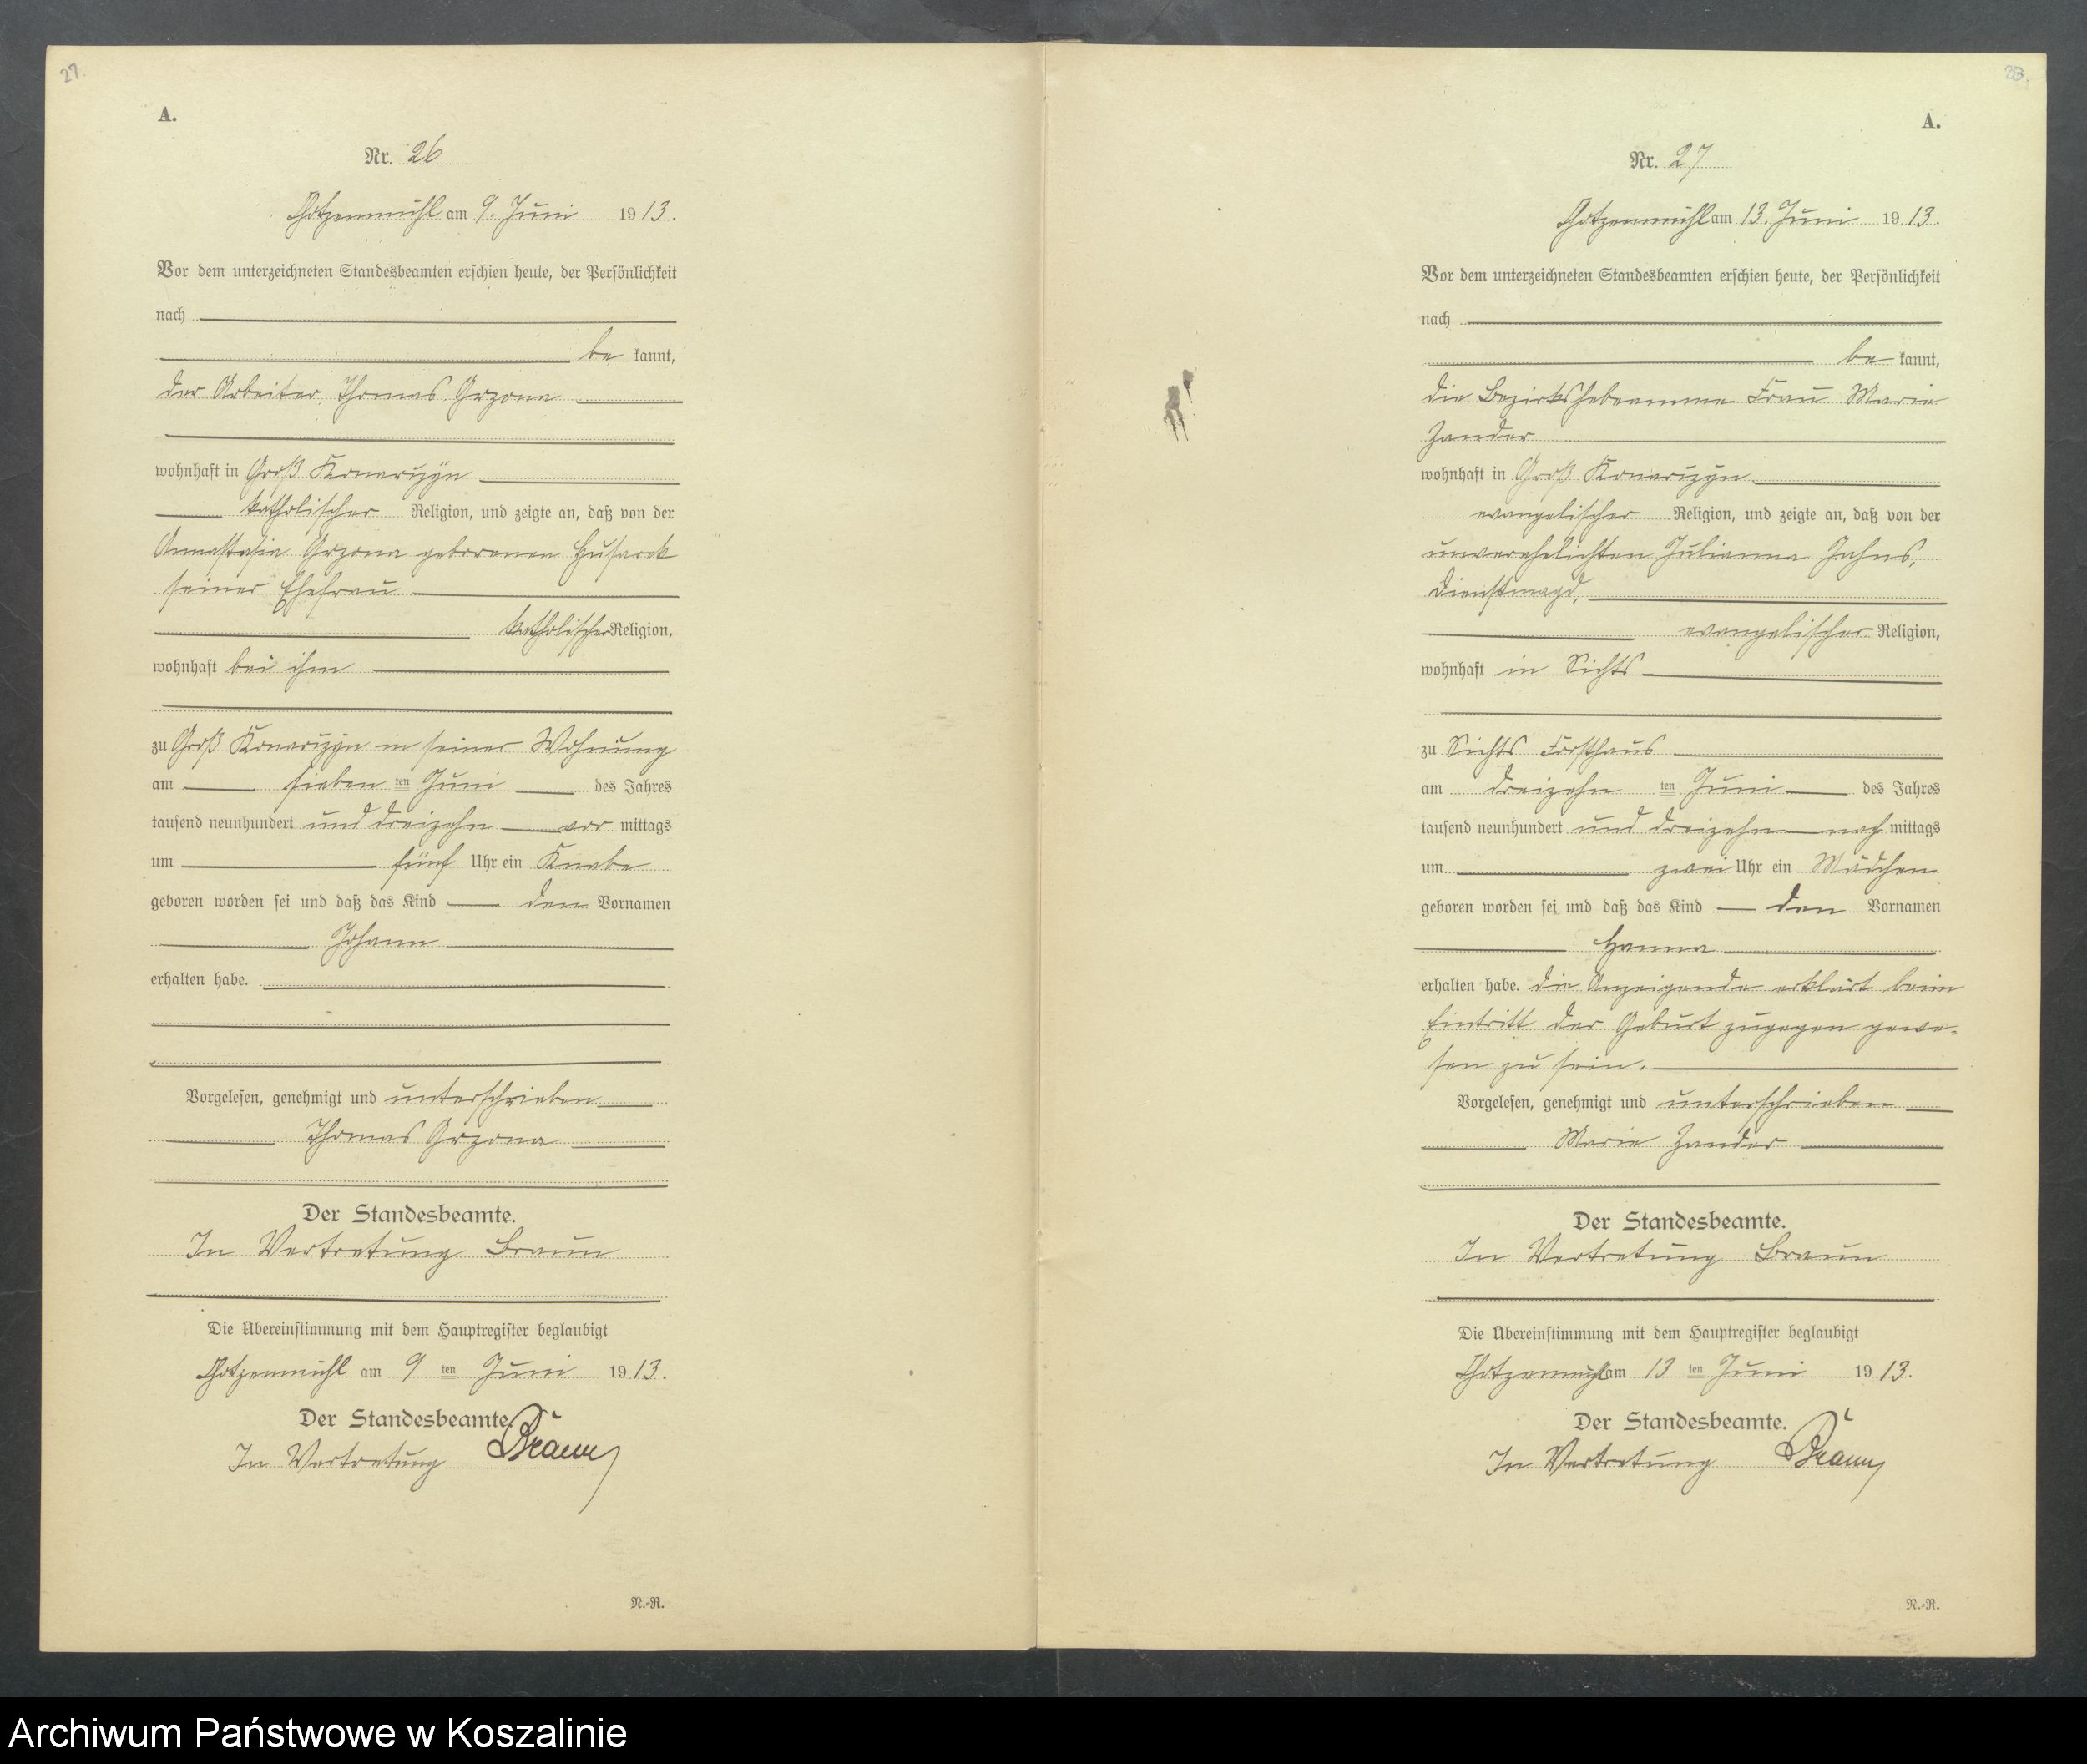 27.
A.
Nr. 26
Chotzenmühl am 9. Juni 1913.
Vor dem unterzeichneten Standesbeamten erschien heute, der Persönlichkeit
nach
bekannt,
der Arbeiter Thomas Grzona
wohnhaft in Groß Konarczyn
katholischer Religion, und zeigte an, daß von der
Annastasia Grzona geborenen Husarek
seiner Ehefrau
katholischer Religion,
wohnhaft bei ihm
zu Groß Konarczyn in seiner Wohnung
am sieben ten Juni des Jahres
tausend neunhundert und dreizehn vor mittags
um fünf Uhr ein Knabe
geboren worden sei und daß das Kind den Vornamen
Johann
erhalten habe.
Vorgelesen, genehmigt und unterschrieben
Thomas Grzona
Der Standesbeamte.
In Vertretung Braun
Die Übereinstimmung mit dem Hauptregister beglaubigt
Chotzenmühl am 9 ten Juni 1913.
Der Standesbeamte.
In Vertretung Braun
N.-R.
A.
Nr. 27
Chotzenmühl am 13. Juni 1913.
Vor dem unterzeichneten Standesbeamten erschien heute, der Persönlichkeit
nach
bekannt,
die Bezirkshebeamme Frau Marie
Zander
wohnhaft in Groß Konarczyn
evangelischer Religion, und zeigte an, daß von der
unverehelichten Julianna Jahns,
Dienstmagd,
evangelischer Religion,
wohnhaft in Sichts
zu Sichts Forsthaus
am dreizehn ten Juni des Jahres
tausend neunhundert und dreizehn nach mittags
um zwei Uhr ein Mädchen
geboren worden sei und daß das Kind den Vornamen
Hanna
erhalten habe. Die Anzeigende erklärt beim
Eintritt der Geburt zugegen gewe-
sen zu sein.
Vorgelesen, genehmigt und unterschrieben
Marie Zander
Der Standesbeamte.
In Vertretung Braun
Die Übereinstimmung mit dem Hauptregister beglaubigt
Chotzenmühl am 13 ten Juni 1913.
Der Standesbeamte.
In Vertretung Braun
N.-R.
Archiwum Państwowe w Koszalinie